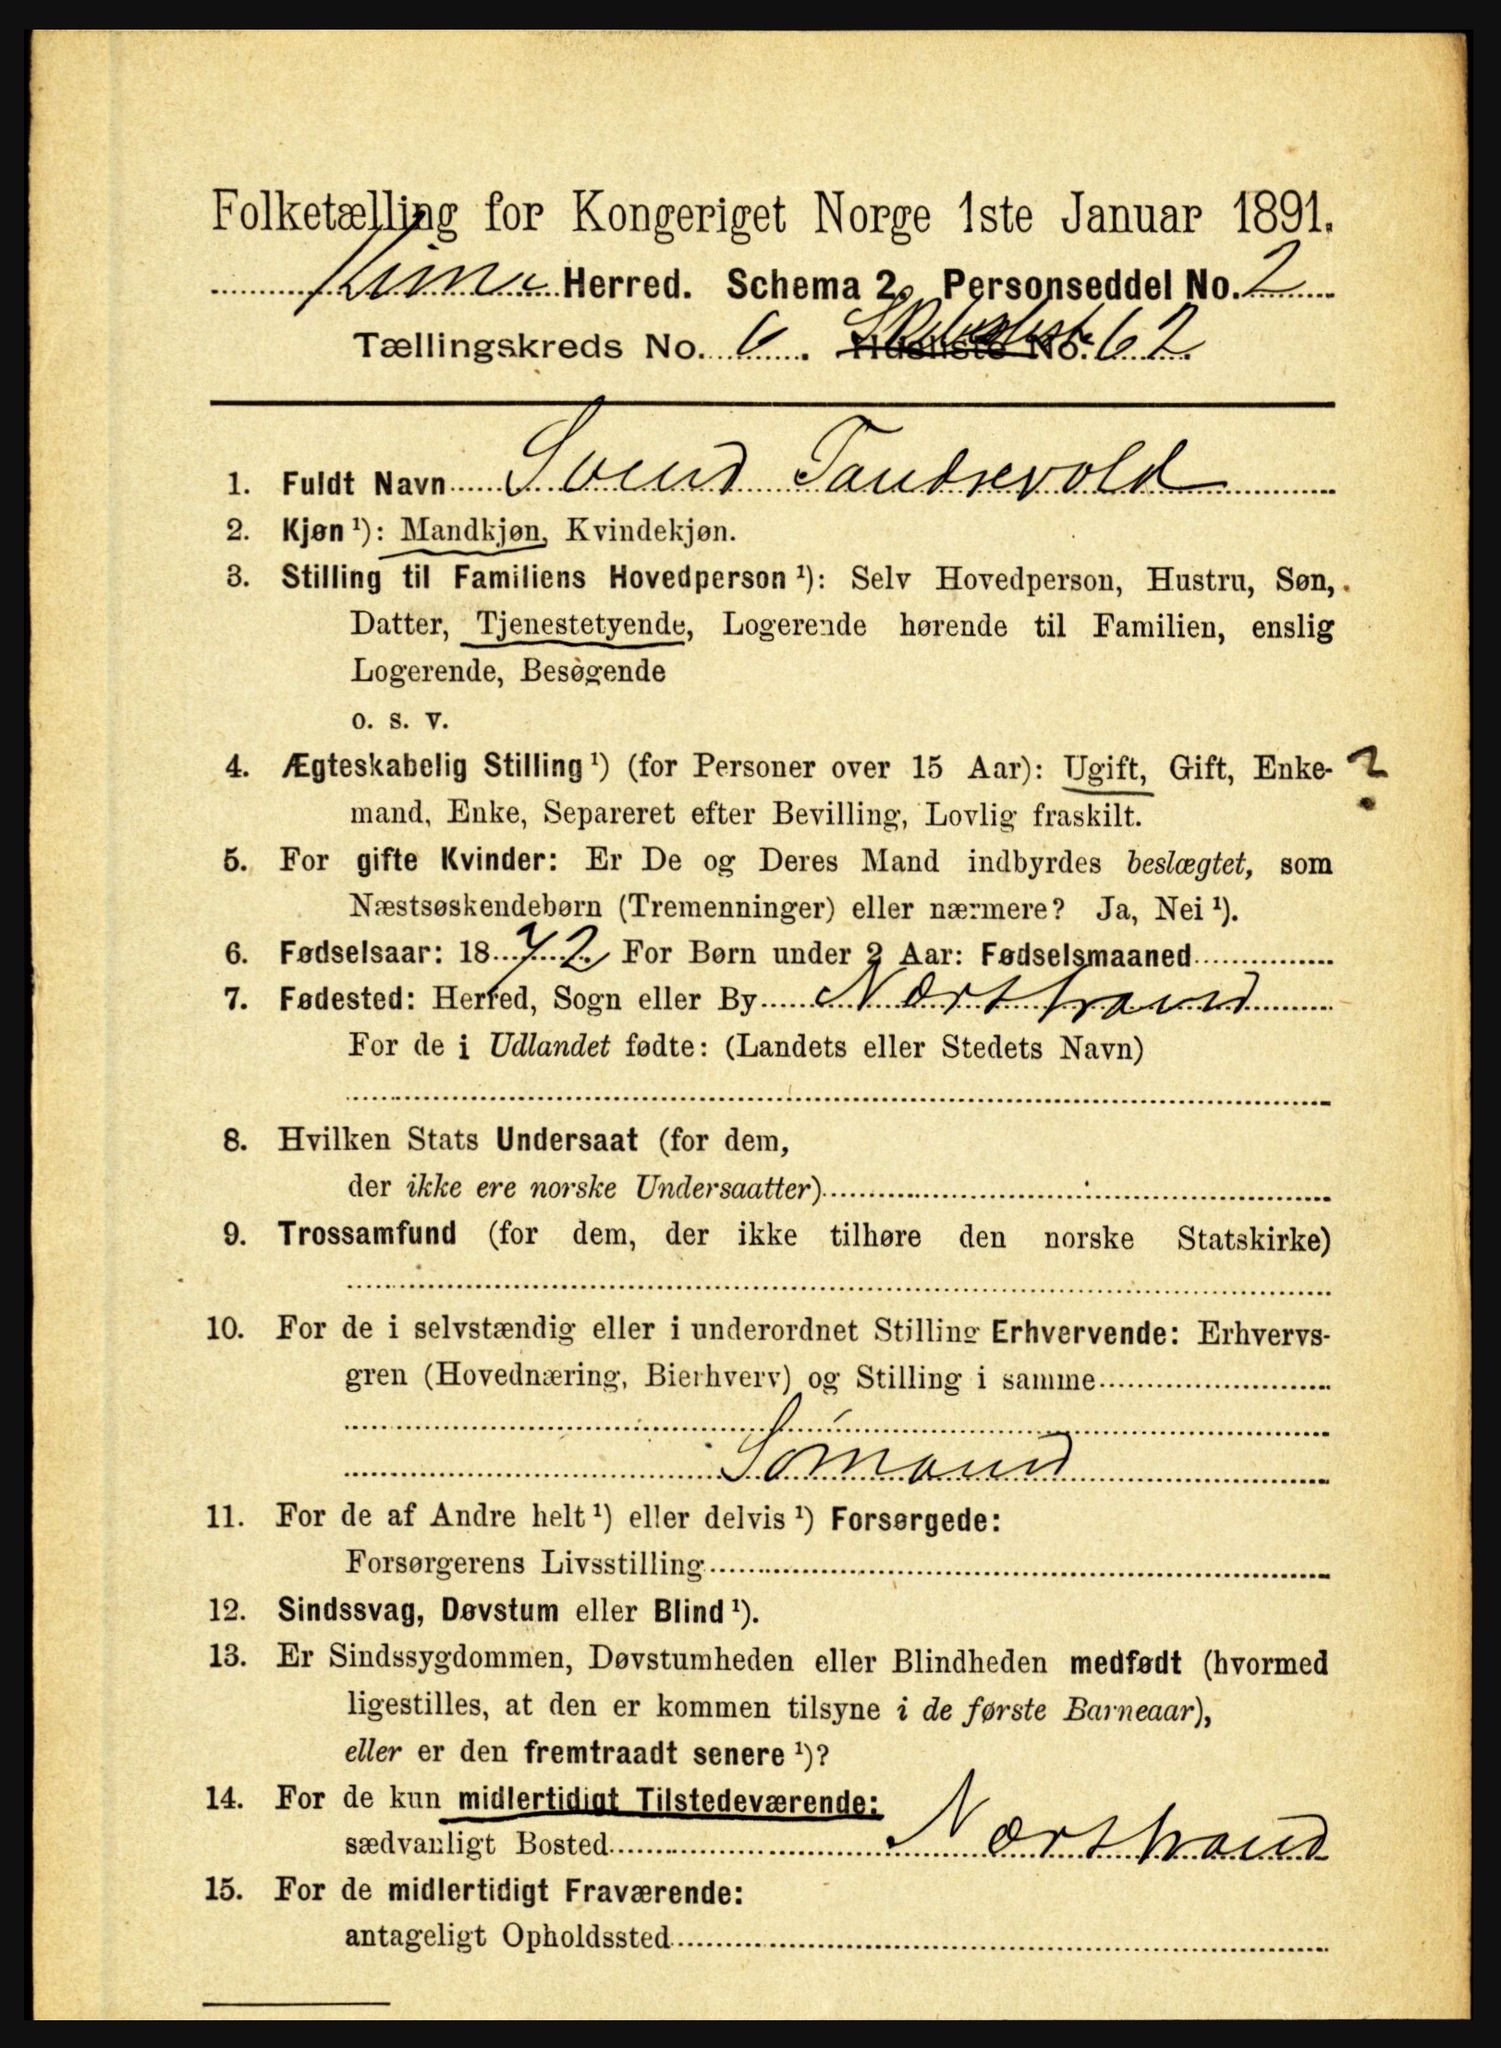 Folketælling for Kongeriget Norge 1ste Januar 1891.
Kinn Herred. Schema 2. Personseddel No. 2
Tællingskreds No. 6. Husliste No. 62.
1. Fuldt Navn Svend Tandrevold
2. Kjøn ¹): Mandkjøn, Kvindekjøn.
3. Stilling til Familiens Hovedperson ¹): Selv Hovedperson, Hustru, Søn,
Datter, Tjenestetyende, Logerende hørende til Familien, enslig
Logerende, Besøgende
o. s. v.
4. Ægteskabelig Stilling ¹) (for Personer over 15 Aar): Ugift, Gift, Enke- ?
mand, Enke, Separeret efter Bevilling, Lovlig fraskilt.
5. For gifte Kvinder: Er De og Deres Mand indbyrdes beslægtet, som
Næstsøskendebørn (Tremenninger) eller nærmere? Ja, Nei ¹).
6. Fødselsaar: 1872. For Børn under 2 Aar: Fødselsmaaned
7. Fødested: Herred, Sogn eller By Nærstrand
For de i Udlandet fødte: (Landets eller Stedets Navn)
8. Hvilken Stats Undersaat (for dem,
der ikke ere norske Undersaatter)
9. Trossamfund (for dem, der ikke tilhøre den norske Statskirke)
10. For de i selvstændig eller i underordnet Stilling Erhvervende: Erhvervs-
gren (Hovednæring, Bierhverv) og Stilling i samme
Sömand
11. For de af Andre helt ¹) eller delvis ¹) Forsørgede:
Forsørgerens Livsstilling
12. Sindssvag, Døvstum eller Blind ¹).
13. Er Sindssygdommen, Døvstumheden eller Blindheden medfødt (hvormed
ligestilles, at den er kommen tilsyne i de første Barneaar),
eller er den fremtraadt senere ¹)?
14. For de kun midlertidigt Tilstedeværende:
sædvanligt Bosted Nærstrand
15. For de midlertidigt Fraværende:
antageligt Opholdssted